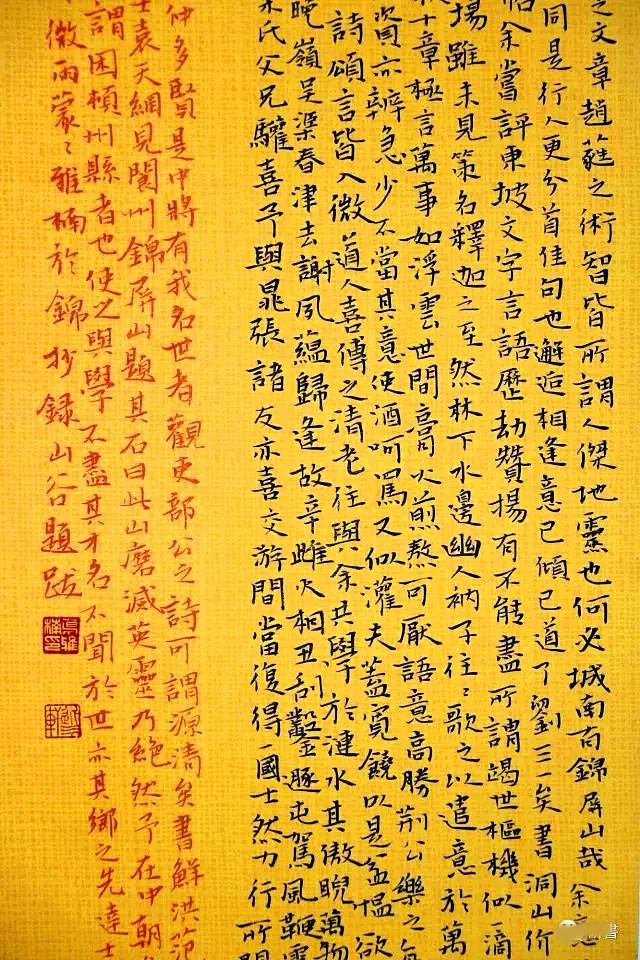 之文章趙蕤之術智皆所謂人傑地靈也何必城南有錦屏山哉余之
同是行人更分首佳句也邂逅相逢意已傾已道了劉三一矣書洞山价
帖余嘗評東坡文字言語歷劫贊揚有不能盡所謂竭世樞機似一滴
場雖未見策名釋迦之至然林下水邊幽人衲子往々歌之以遣意於萬
十章極言萬事如浮雲世間膏火煎熬可厭語意高勝荊公樂之
資亦辨急少不當其意使酒呵罵又似灌夫蓋寬饒以是孟慍欲
詩頌言皆入微道人喜傳之清老往與余共學於漣水其傲睨萬物
晚嶺吳梁春津去謝夙蘊歸逢故辛雌火相丑刮鑿豚屯駕風鞭霆
宋氏父兄驩喜予與晁張諸友亦喜交游間當復得一國士然力行所聞
仲多賢是中將有我名世者觀吏部公之詩可謂源清矣書鮮洪范
士袁天綱見閬州錦屏山題其石曰此山磨滅英靈乃絕然予在中朝
謂困頓州縣者也使之與學不盡其才名不聞於世亦其鄉之先達士
微雨蒙々雅楠於錦抄錄山谷題跋